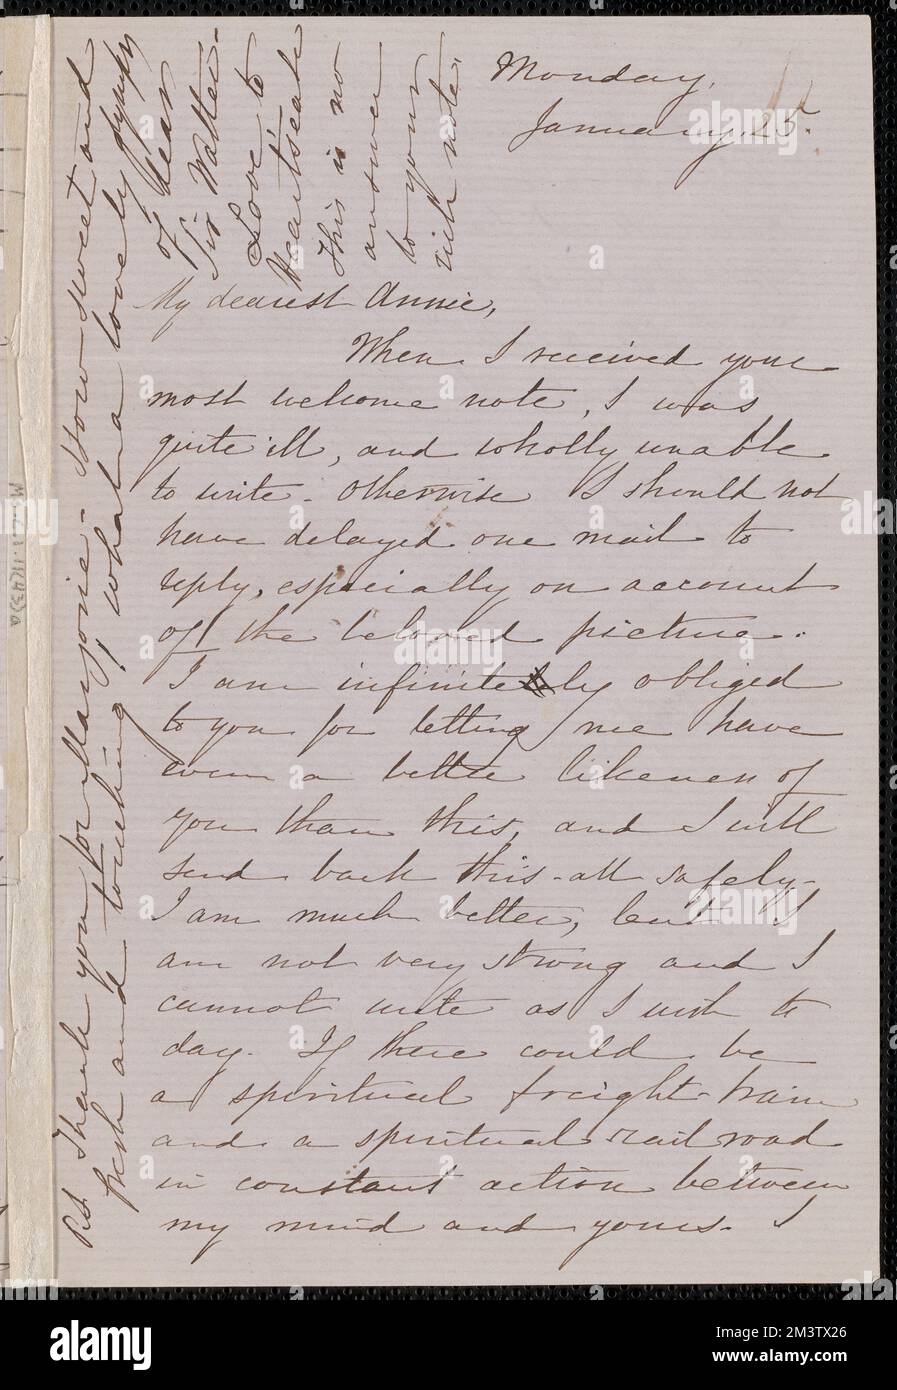 Monday,
January, 25.
My dearest Annie,
When I received your
most welcome note, I was
quite ill, and wholly unable
to write - otherwise I should not
have delayed one mail to
reply, especially on account
of the beloved picture.
I am infinitely obliged
to you for letting me have
even a better likeness of
you than this, and I will
send back this - all safely.
I am much better, but I
am not very strong and I
cannot write as I wish to
day. If there could be
a spiritual freight-train
and a spiritual rail road
in constant action between
my mind and yours - I
P.S. Thank you for Marjorie - How sweet and
fresh and touching, what a lovely glimpse
of dear
Sir Walter -
Love to
Heartsease
This is no
answer
to your
rich note.
alamy
Image ID: 2M3TX26
www.alamy.com